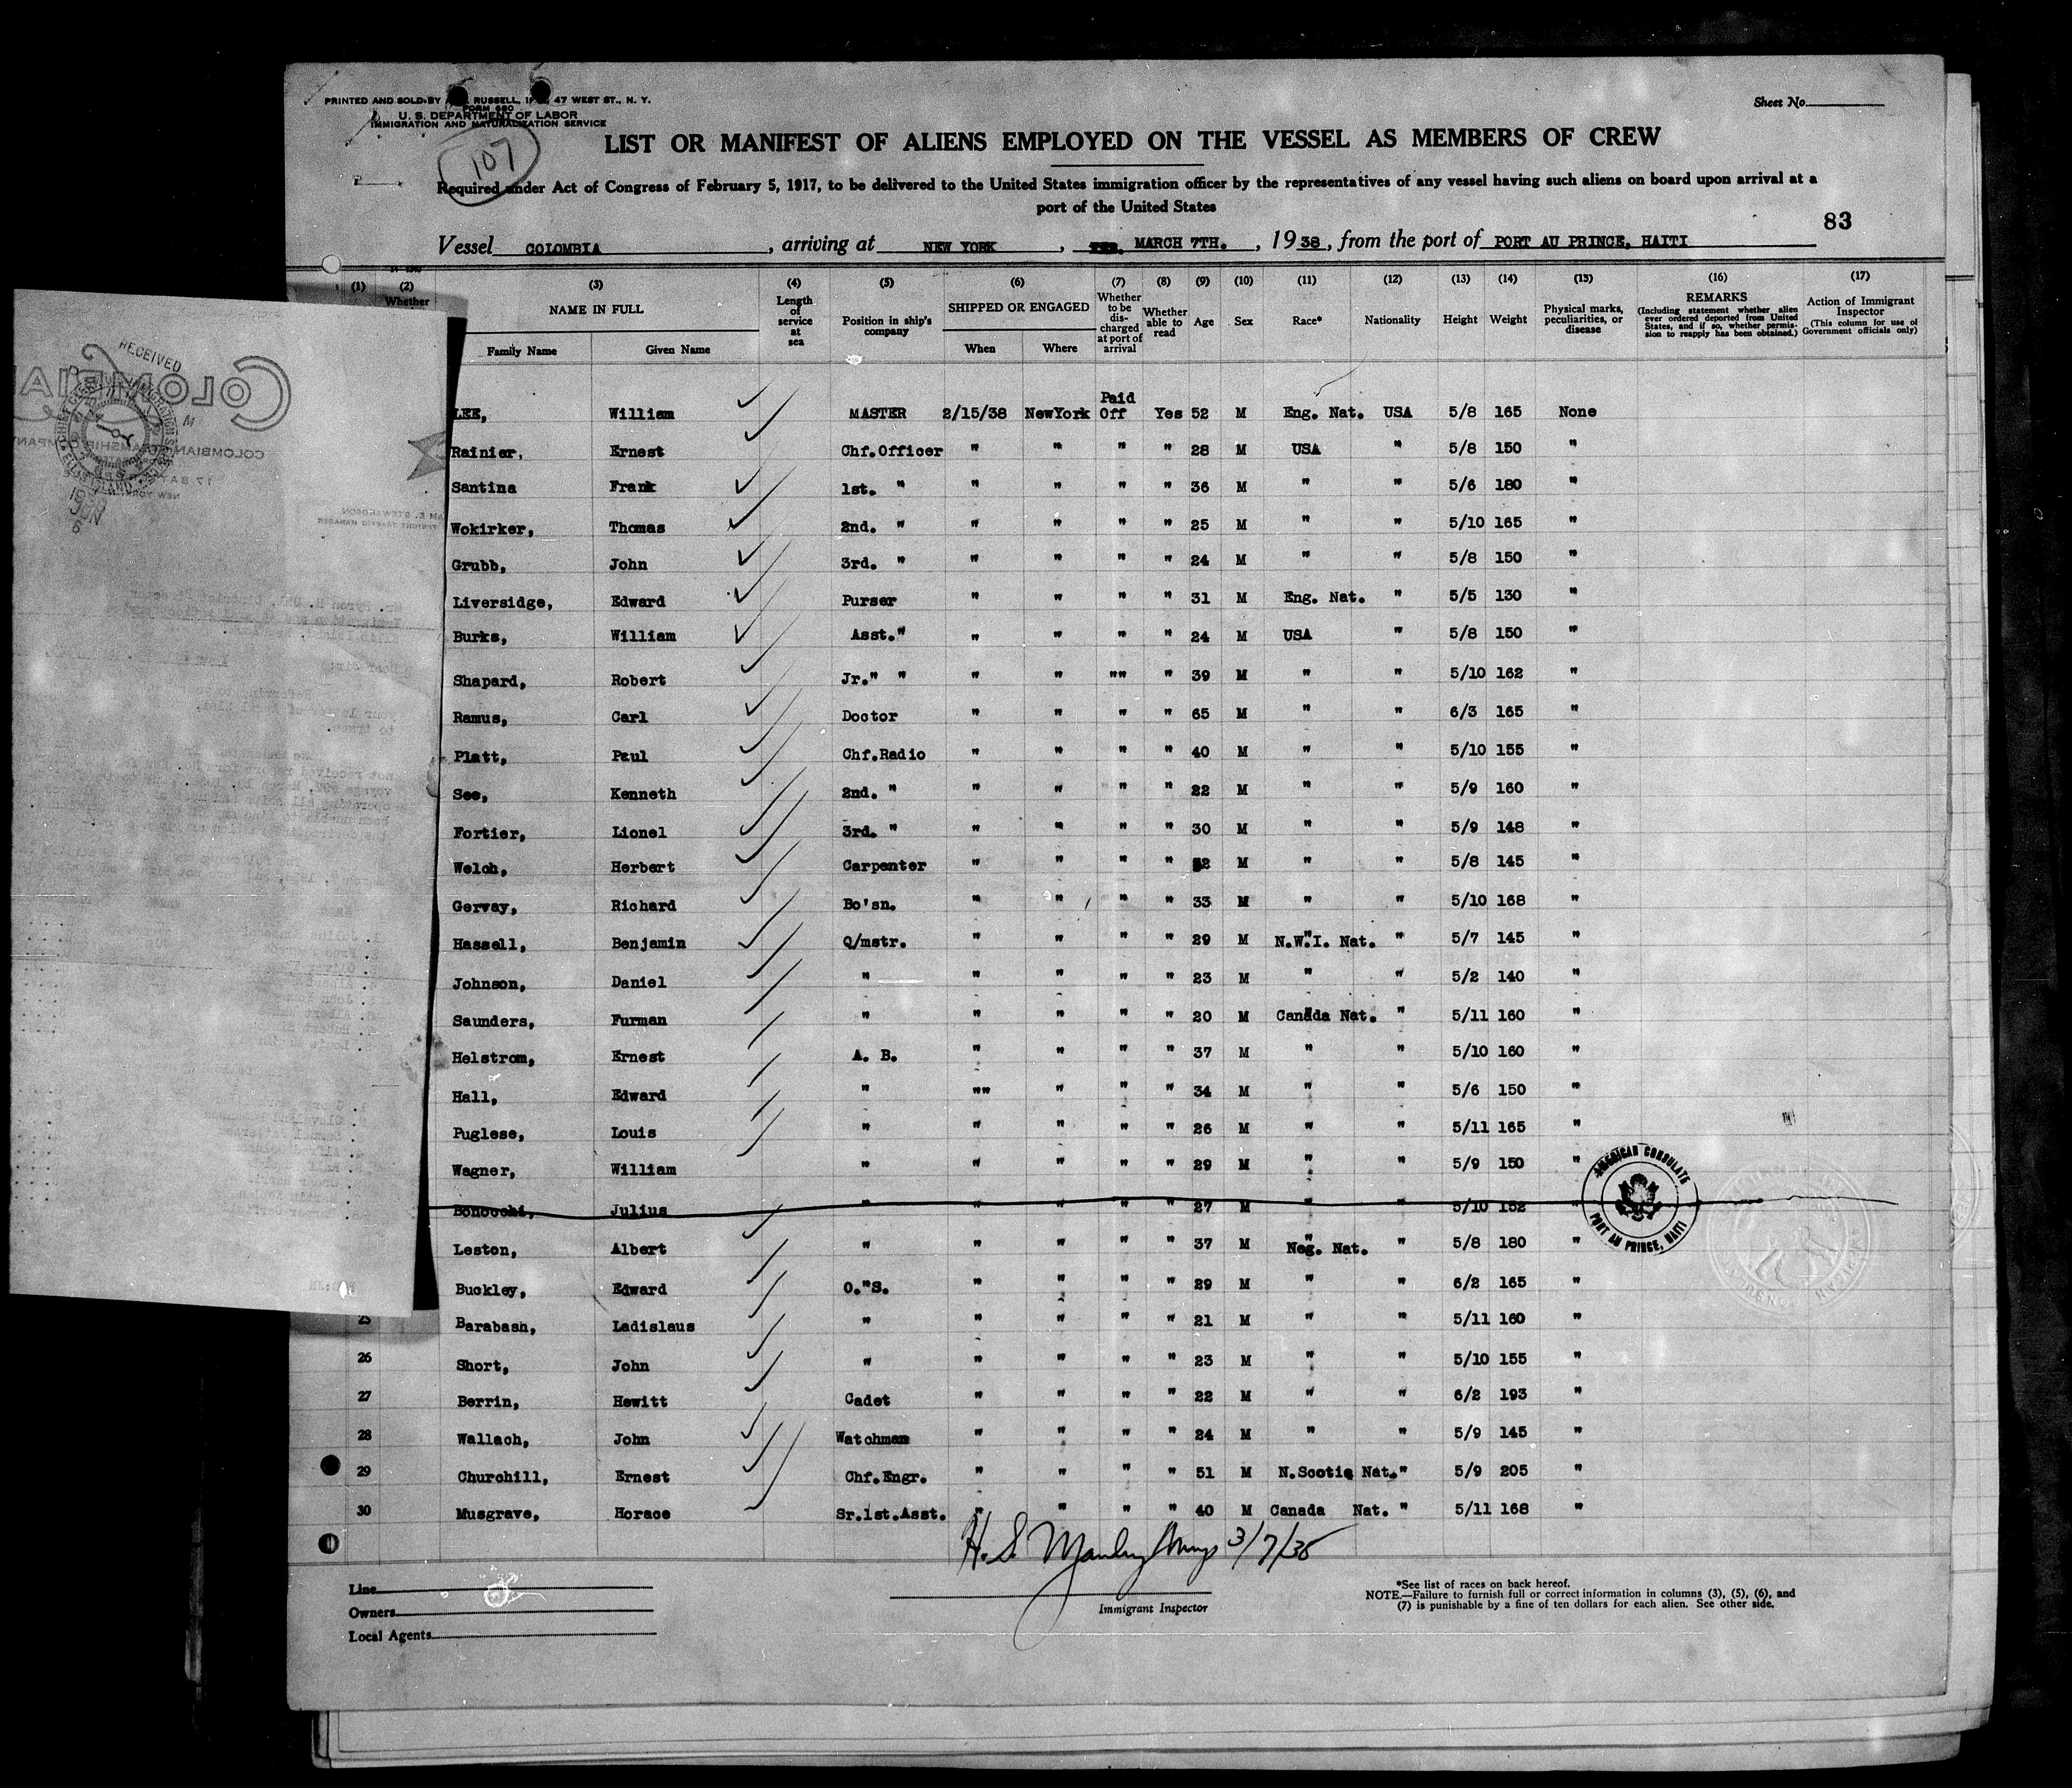 PRINTED AND SOLD BY RUSSELL, 47 WEST ST., N. Y.
FORM 680
U. S. DEPARTMENT OF LABOR
IMMIGRATION AND NATURALIZATION SERVICE
Sheet No.
107
LIST OR MANIFEST OF ALIENS EMPLOYED ON THE VESSEL AS MEMBERS OF CREW
Required under Act of Congress of February 5, 1917, to be delivered to the United States immigration officer by the representatives of any vessel having such aliens on board upon arrival at a
port of the United States
83
Vessel COLOMBIA, arriving at NEW YORK, MARCH 7TH., 1938, from the port of PORT AU PRINCE, HAITI
(1) (2) (3) (4) (5) (6) (7) (8) (9) (10) (11) (12) (13) (14) (15) (16) (17)
Whether
NAME IN FULL
Family Name Given Name
Length of service at sea
Position in ship's company
SHIPPED OR ENGAGED
When Where
Whether to be discharged at port of arrival
Whether able to read
Age Sex Race* Nationality Height Weight
Physical marks, peculiarities, or disease
REMARKS
(Including statement whether alien ever ordered deported from United States, and if so, whether permission to reapply has been obtained.)
Action of Immigrant Inspector
(This column for use of Government officials only)
LEE, William MASTER 2/15/38 NewYork Paid Off Yes 52 M Eng. Nat. USA 5/8 165 None
Rainier, Ernest Chf.Officer " " " " 28 M USA " 5/8 150 "
Santina Frank 1st. " " " " " 36 M " " 5/6 180 "
Wokirker, Thomas 2nd. " " " " " 25 M " " 5/10 165 "
Grubb, John 3rd. " " " " " 24 M " " 5/8 150 "
Liversidge, Edward Purser " " " " 31 M Eng. Nat. " 5/5 130 "
Burks, William Asst." " " " " 24 M USA " 5/8 150 "
Shapard, Robert Jr." " " " "" " 39 M " " 5/10 162 "
Ramus, Carl Doctor " " " " 65 M " " 6/3 165 "
Platt, Paul Chf.Radio " " " " 40 M " " 5/10 155 "
See, Kenneth 2nd. " " " " " 22 M " " 5/9 160 "
Fortier, Lionel 3rd. " " " " " 30 M " " 5/9 148 "
Welch, Herbert Carpenter " " " " M " " 5/8 145 "
Gervay, Richard Bo'sn. " " " " 33 M " " 5/10 168 "
Hassell, Benjamin Q/mstr. " " " " 29 M N.W.I. Nat. " 5/7 145 "
Johnson, Daniel " " " " " 23 M " " 5/2 140 "
Saunders, Furman " " " " " 20 M Canada Nat. " 5/11 160 "
Helstrom, Ernest A. B. " " " " 37 M " " 5/10 160 "
Hall, Edward " "" " " " 34 M " " 5/6 150 "
Puglese, Louis " " " " " 26 M " " 5/11 165 "
Wagner, William " " " " " 29 M " " 5/9 150 "
Bonocchi, Julius " " " " " 27 M " " 5/10 152 "
Leston, Albert " " " " " 37 M Neg. Nat. " 5/8 180 "
Buckley, Edward O."S. " " " " 29 M " " 6/2 165 "
25 Barabash, Ladislaus " " " " " 21 M " " 5/11 160 "
26 Short, John " " " " " 23 M " " 5/10 155 "
27 Berrin, Hewitt Cadet " " " " 22 M " " 6/2 193 "
28 Wallach, John Watchman " " " " 24 M " " 5/9 145 "
29 Churchill, Ernest Chf.Engr. " " " " 51 M N.Scotia Nat." 5/9 205 "
30 Musgrave, Horace Sr.1st.Asst. " " " " 40 M Canada Nat. " 5/11 168 "
AMERICAN CONSULATE
PORT AU PRINCE, HAITI
H. S. 3/7/38
Immigrant Inspector
Line
Owners
Local Agents
*See list of races on back hereof.
NOTE.—Failure to furnish full or correct information in columns (3), (5), (6), and
(7) is punishable by a fine of ten dollars for each alien. See other side.
RECEIVED
1938
JUN
6